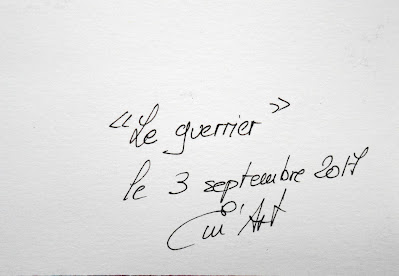 « Le guerrier »
le 3 septembre 2017